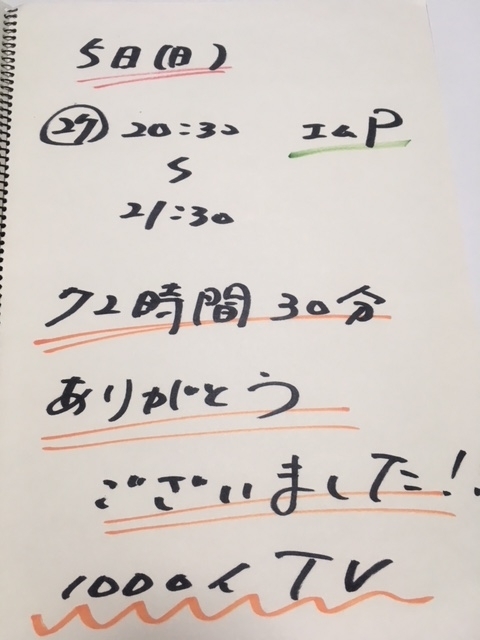 5日(日)
㉗ 20:30 エムP
〜
21:30
72時間30分
ありがとう
ございました!.
1000人TV